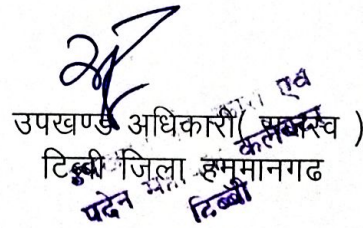 उपखण्ड अधिकारी( राजस्व )
टिब्बी जिला हनुमानगढ
एवं
कलक्टर
पदेन
टिब्बी